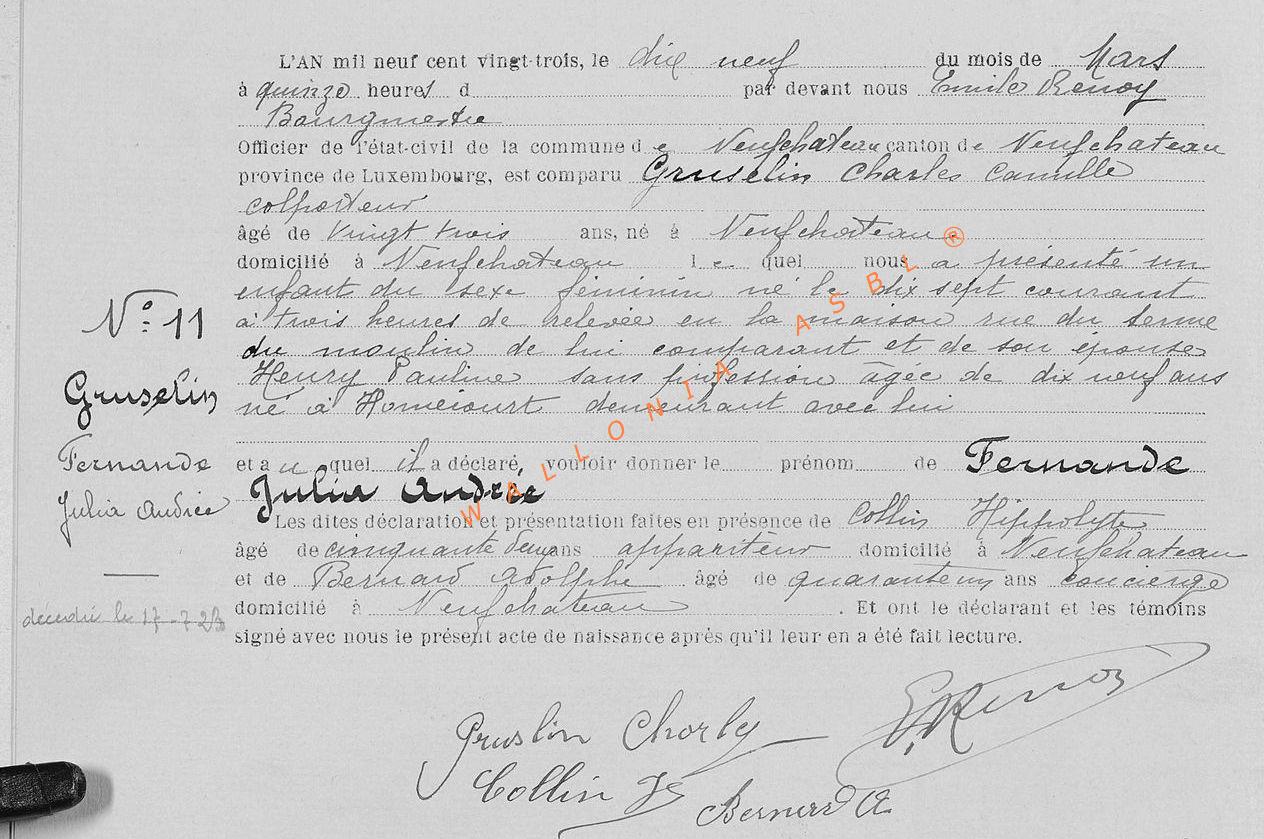 L'AN mil neuf cent vingt-trois, le dix neuf du mois de Mars
à quinze heures d par devant nous Emile Renoy
Bourgmestre
Officier de l'état-civil de la commune de Neufchateau canton de Neufchateau
province de Luxembourg, est comparu Gruselin Charles Camille
colporteur
âgé de vingt trois ans, né à Neufchateau
domicilié à Neufchateau le quel nous a présenté un
enfant du sexe féminin né le dix sept courant
à trois heures de relevée en la maison rue du
du moulin de lui comparant et de son épouse
Henry Pauline sans profession âgée de dix neuf ans
né à Homécourt demeurant avec lui
et au quel il a déclaré vouloir donner le prénom de Fernande
Julia Andrée
Les dites déclaration et présentation faites en présence de Collin Hippolyte
âgé de cinquante deux ans appariteur domicilié à Neufchateau
et de Bernard Adolphe âgé de quarante un ans concierge
domicilié à Neufchateau. Et ont le déclarant et les témoins
signé avec nous le présent acte de naissance après qu'il leur en a été fait lecture.
N° 11
Gruselin
Fernande
Julia Andrée
décédée le 17-7-23
WALLONIA ASBL ®
Gruslin Charly
E. Renoy
Collin H
Bernard A